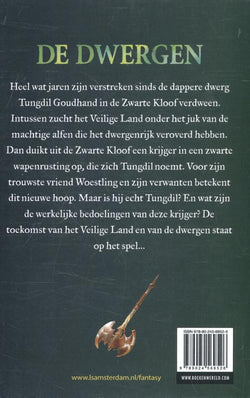 DE DWERGEN
Heel wat jaren zijn verstreken sinds de dappere dwerg
Tungdil Goudhand in de Zwarte Kloof verdween.
Intussen zucht het Veilige Land onder het juk van
de machtige alfen die het dwergenrijk veroverd hebben.
Dan duikt uit de Zwarte Kloof een krijger in een zwarte
wapenrusting op, die zich Tungdil noemt. Voor zijn
trouwste vriend Woestling en zijn verwanten betekent
dit nieuwe hoop. Maar is hij echt Tungdil? En wat zijn
de werkelijke bedoelingen van deze krijger? De
toekomst van het Veilige Land en van de dwergen staat
op het spel...
www.lsamsterdam.nl/fantasy
WWW.BOEKENWERELD.COM